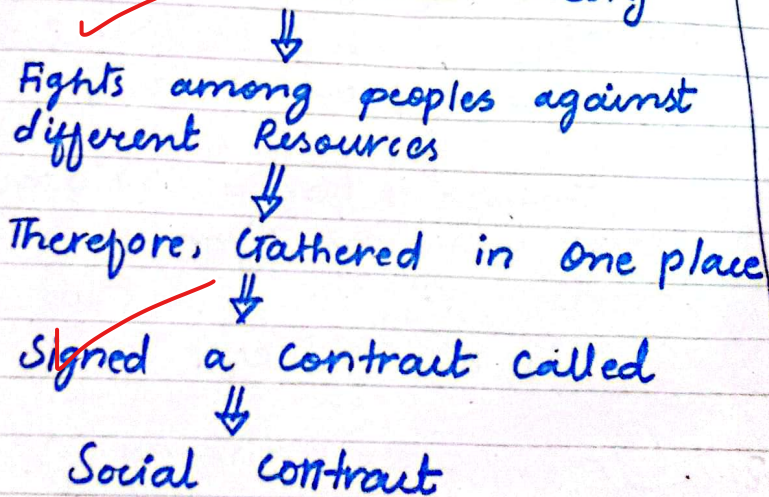 ⇓
Fights among peoples against
different Resources
⇓
Therefore, Gathered in one place
⇓
Signed a contract called
⇓
Social contract